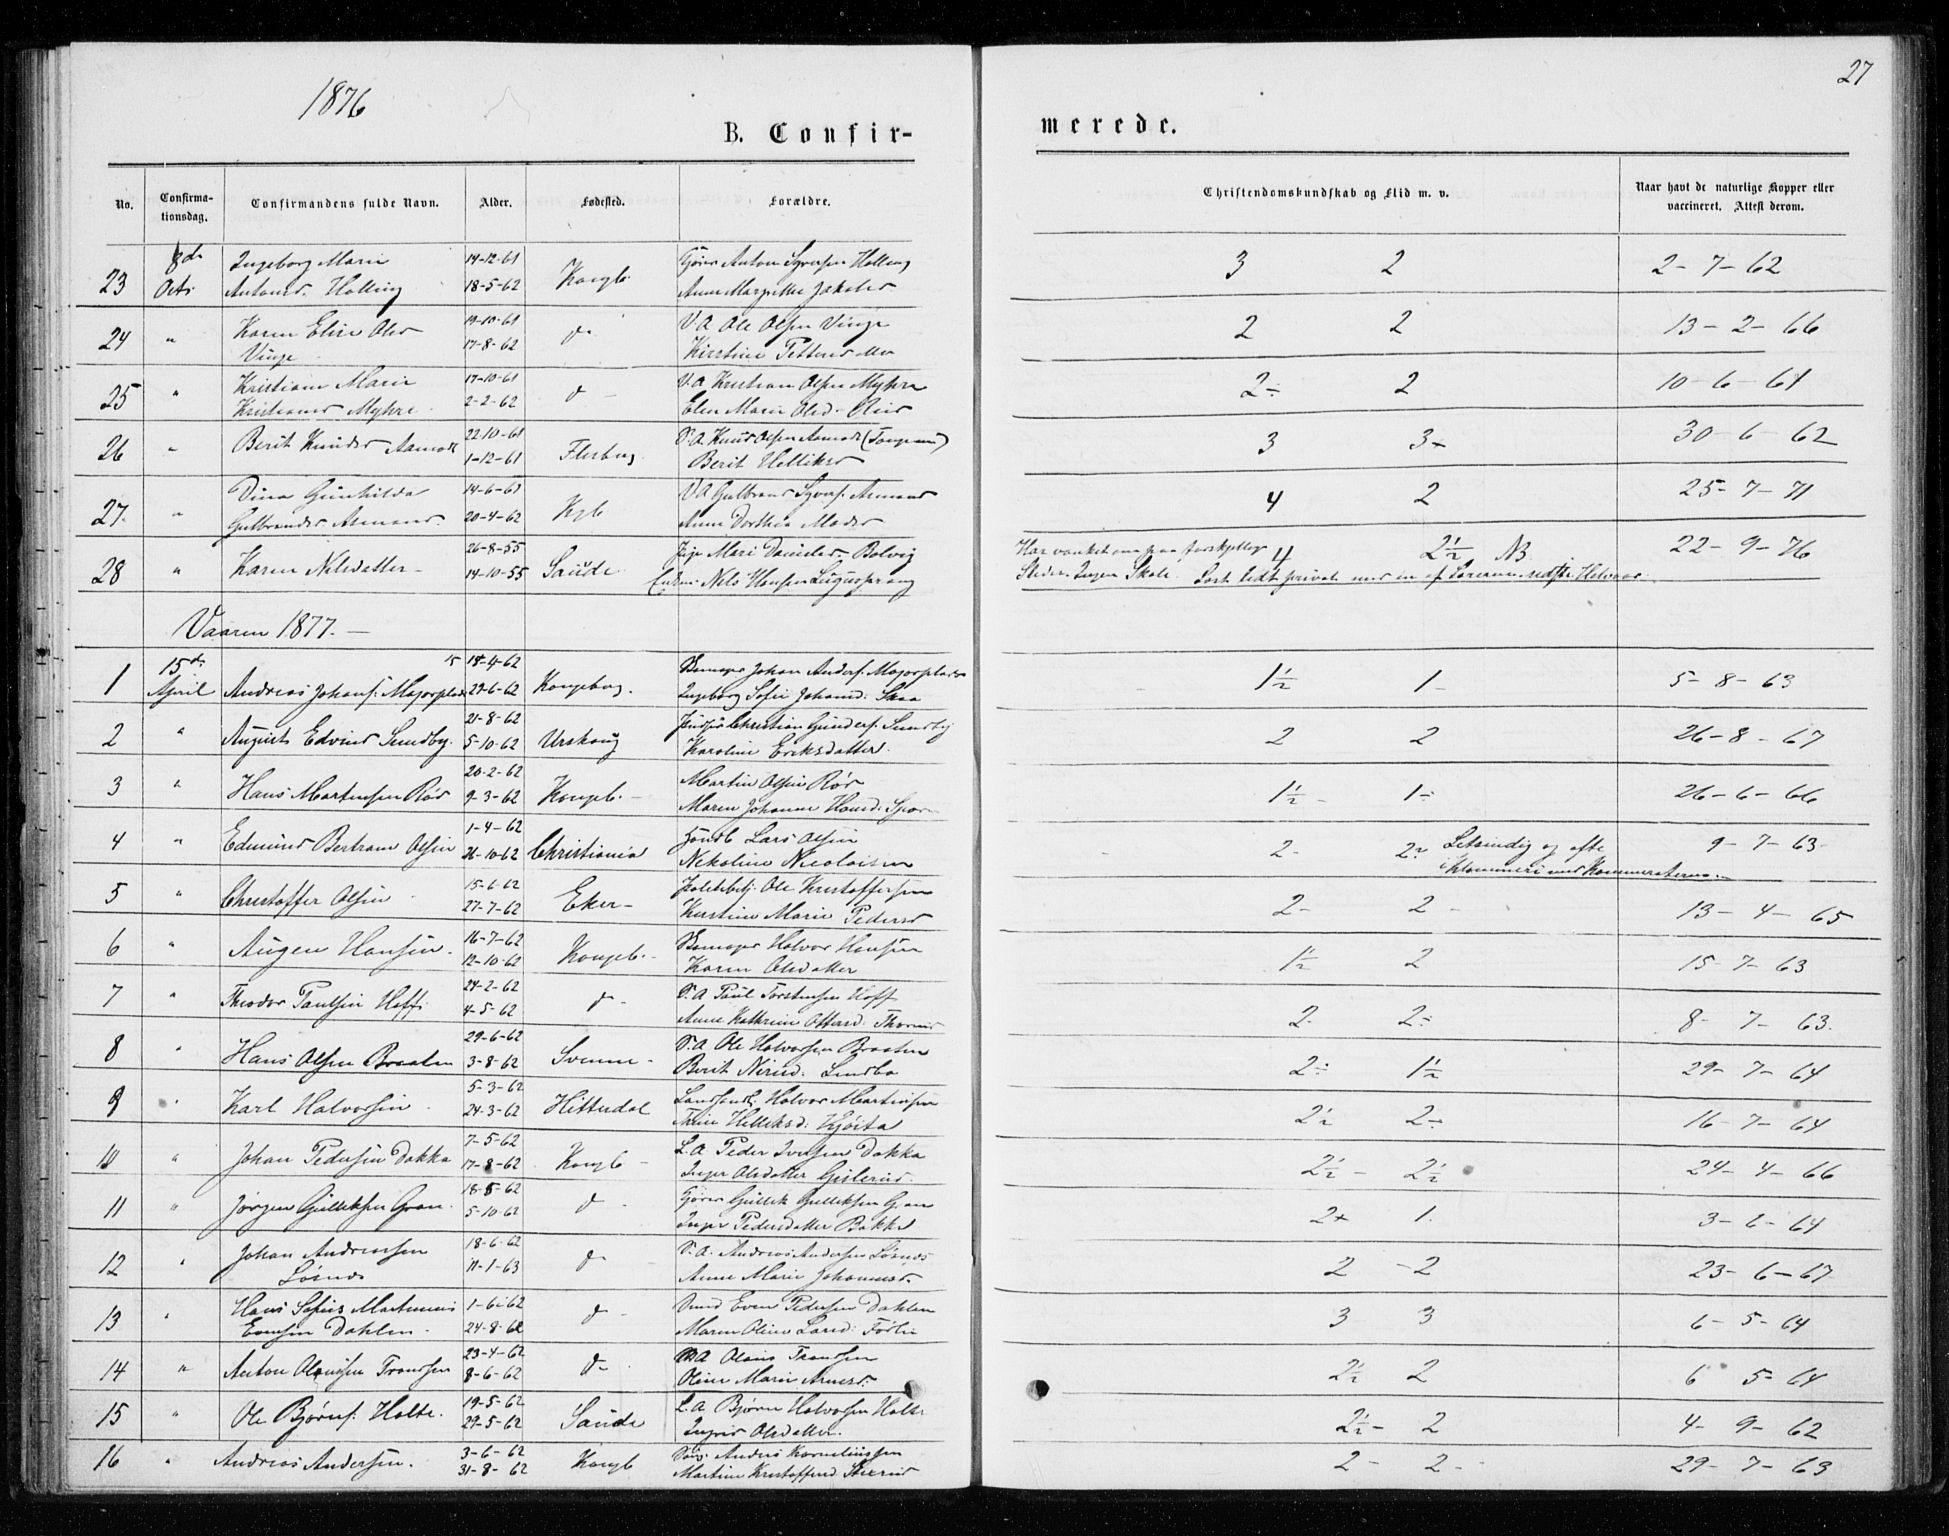 1876
27
B. Confir-
merede.
No. Confirma-tionsdag. Confirmandens fulde Navn. Alder. Fødested. Forældre. Christendomskundskab og Flid m. v. Naar havt de naturlige Kopper eller vaccineret. Attest derom.
8de Ingeborg Marie 14-12-61 Anton
23 Octr Antonsd. Halling 18-5-62 Kongb. Anne Margrethe Jakobsd 3 2 2-7-62
24 " Karen Elise Olsd 19-10-61 do V.A Ole Olsen Vinge 2 2 13-2-66
Vinge 17-8-62 Kirstine
25 " Kristiane Marie 17-10-61 do V.A Kristian Olsen Myhre 2÷ 2 10-6-64
Kristiansd Myhre 2-2-62 Elen Marie Olsd.
26 " Berit Knudsd Aamodt 22-10-61 Flesberg S.A. Knud Olsen Aamodt 3 3+ 30-6-62
1-12-61 Berit Helliksd
27. " Dina Gunhilda 14-6-61 Kgb V.A Gulbrand Asmand 4 2 25-7-71
Gulbrandsd Asmand. 20-4-62 Anne Dorthea
28 " Karen Nilsdatter 26-8-55 Saude Pige Mari Danielsd. Bolvig 4 2½ NB 22-9-76
14-10-55 Nels Hansen
Har vanket om paa forskjellige
Steder. Ingen Skole. Lært lidt privat med en af Lærerne
Vaaren 1877. —
15de 15 18-4-62 Johan Anders. Majorplads
1 April Andreas Johans. Majorplads 29-6-62 Kongsberg. Ingeborg Sofie Johansd. Skaa 1½ 1- 5-8-63
2 " August Edvind Sundby. 21-8-62 Urskoug Christian Gunders. Sundby 2 2 26-8-67
5-10-62 Karoline Eriksdatter.
3 " Hans Martinsen Rød 20-2-62 Kongb. Martin Olsen Rød 1½- 1÷ 26-6-66
9-3-62 Maren Johanne Hansd.
4 " Edmund Bertram Olsen 1-4-62 Christiania Handlb Lars Olsen 2- 2? Letsindig og ofte 9-7-63
26-10-62 Nikoline Nicolaisen i Klammeri med Kammeraterne.
5 " Christoffer Olsen 15-6-62 Eker- Politibetj. Ole Kristoffersen 2- 2- 13-4-65
27-7-62 Kirstine Marie Pedersd
6 " Augen Hansen. 16-7-62 Kongb. Halvor Hansen 1½ 2 15-7-63
12-10-62 Karen Olsdatter
7 " Theodor Paulsen Hoff. 24-2-62 do S.A Paul Torstensen Hoff 2- 2÷ 8-7-63.
4-5-62 Anne Kathrine Ottersd.
8 " Hans Olsen Braaten 29-6-62 Svenne- S.A Ole Halvorsen Braaten 2÷ 1½ 29-7-64
3-8-62 Berit
9 " Karl Halvorsen 5-3-62 Hitterdal Halvor Martinsen 2½ 2÷ 16-7-64
24-3-62 Helliksd.
10 " Johan Pedersen Dokka 7-5-62 Kongb- L.A Peder Iversen Dokka 2½- 2½ 24-4-66
17-8-62 Inger Olsdatter Gislerud.
11 " Jørgen Gulliksen Gran. 18-5-62 do Gullik Gulliksen Gran 2+ 1. 3-6-64
5-10-62 Inger Pedersdatter Bakke
12 " Johan Andreassen 18-6-62 do S.A. Andreas Andersen Løsnæs 2 -2 23-6-67
Løsnæs 11-1-63 Anne Marie Johannesd.
13 " Hans Sofus Martinius 1-6-62 do Smed Even Pedersen Dahlen 3 3 6-5-64
Evensen Dahlen. 24-8-62 Maren Oline Larsd.
14 " Anton Olaussen Trondsen 23-4-62 do Olaus Trondsen 2½ 2 6 5-64
8-6-62 Oline Marie
15 " Ole Bjørns. Holte. 19-5-62 Saude L.A Bjørn Halvorsen Holte 2½- 2 4-9-62
29-5-62 Ingrid Olsdatter.
16 " Andreas Andersen. 3-6-62 Kongb Anders Korneliussen 2- 2- 29-7-63
31-8-62 Martine Kristoffersd